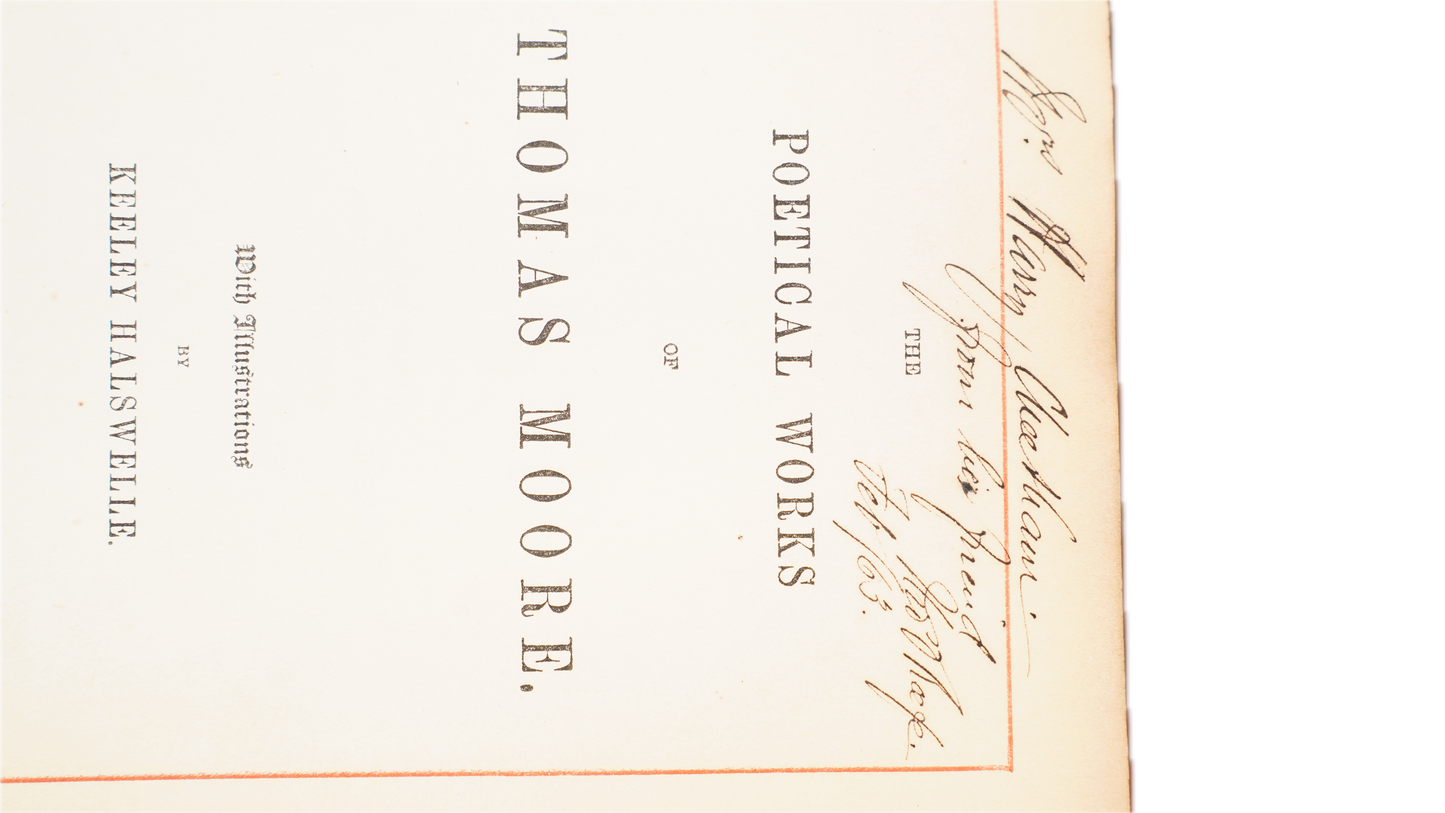 Mrs Henry
from her friend
Feb /63.
THE
POETICAL WORKS
OF
THOMAS MOORE.
With Illustrations
BY
KEELEY HALSWELLE.